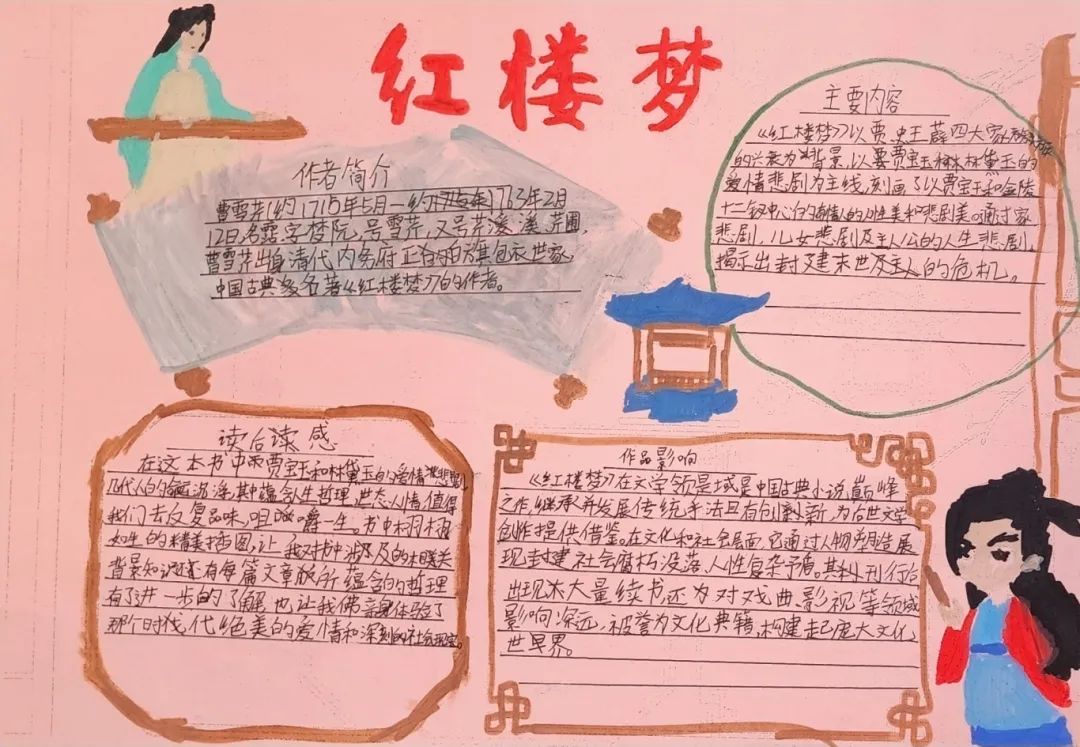 红楼梦
作者简介
曹雪芹(约1715年5月—约1763年2月
12日,名霑,字梦阮,号雪芹,又号芹溪、芹圃,
曹雪芹出身清代内务府正白旗包衣世家,
中国古典名著《红楼梦》的作者。
主要内容
《红楼梦》以贾史王薛四大家族
的兴衰为背景,以贾宝玉林黛玉的
爱情悲剧为主线,刻画了以贾宝玉和金陵
十二钗中心的人性美和悲剧美。通过家
悲剧,儿女悲剧及主人公的人生悲剧,
揭示出封建末世及的危机。
读后读感
在这本书中贾宝玉和林黛玉的爱情悲剧
几代人的其中蕴含人生哲理,世态人情,值得
我们去反复品味,咀嚼一生。书中栩栩
如生的精美插图,让我对书中涉及的相关
背景知识还有每篇文章所蕴含的哲理
有了进一步的了解,也让我仿亲身体验了
那个时代,代绝美的爱情和深刻的社会现实。
作品影响
《红楼梦》在文学领域是中国古典小说巅峰
之作,继承并发展传统手法且有创新,为后世文学
创作提供借鉴。在文化和社会层面,它通过人物塑造展
现封建社会腐朽没落,人性复杂矛盾。其刊行后
出现大量续书还为对戏曲、影视等领域
影响深远,被誉为文化典籍,构建起庞大文化
世界。